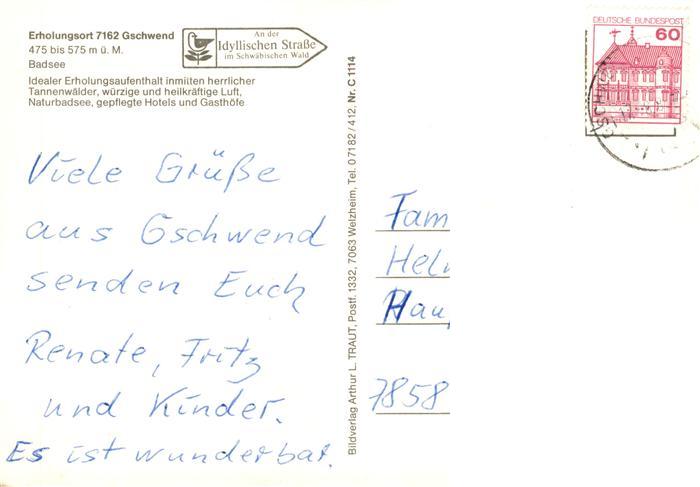 Erholungsort 7162 Gschwend
475 bis 575 m ü. M.
Badsee
Idealer Erholungsaufenthalt inmitten herrlicher
Tannenwälder, würzige und heilkräftige Luft,
Naturbadsee, gepflegte Hotels und Gasthöfe
An der
Idyllischen Straße
im Schwäbischen Wald
DEUTSCHE BUNDESPOST
60
Viele Grüße
aus Gschwend
senden Euch
Renate, Fritz
und Kinder.
Es ist wunderbar.
Bildverlag Arthur L. TRAUT, Postf. 1332, 7063 Welzheim, Tel. 07182/412, Nr. C 1114
Fam
Hel
Hau
7858